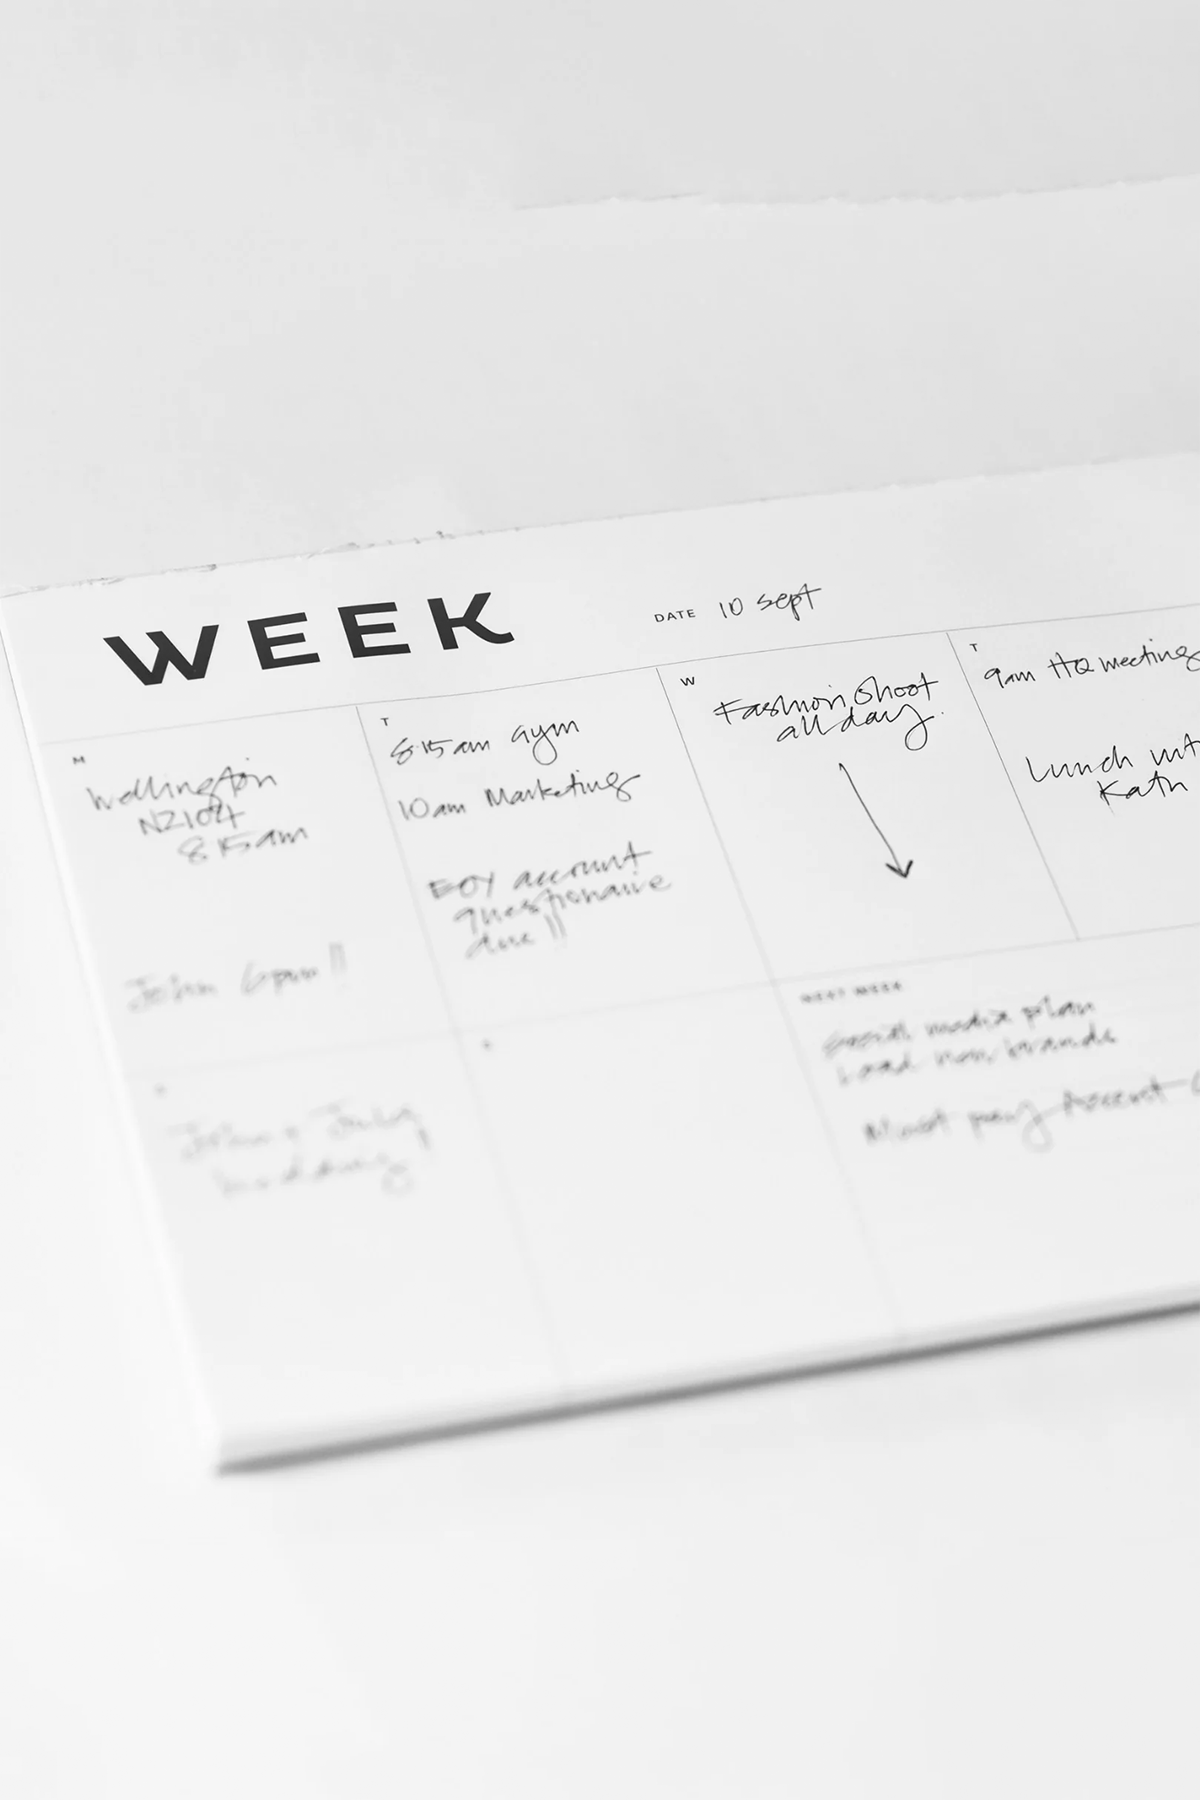 WEEK
DATE 10 sept
M
Wellington
NZ104
8 15am
John 6pm!!
T
8.15am Gym
10am Marketing
EOY account
questionaire
due !!
W
Fashion Shoot
all day.
T
9am HQ meeting
Lunch
Kath
S
John & July
wedding
S
NEXT WEEK
Social media plan
Load new brands
Must pay Accent